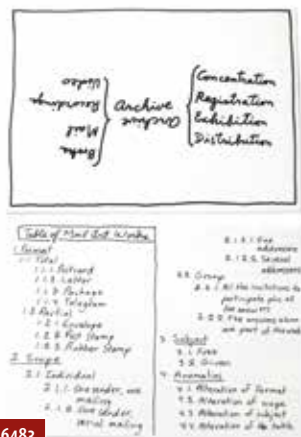 Concentration
Registration
Exhibition
Distribution
archive
archive
Books
Mail
Recordings
Video
Table of Mail Art Works
1. Format
1.1. Total
1.1.1. Postcard
1.1.2. Letter
1.1.3. Package
1.1.4. Telegram
1.2. Partial
1.2.1. Envelope
1.2.2. Post Stamp
1.2.3. Rubber Stamp
2. Scope
2.1. Individual
2.1.1. One sender, one
mailing
2.1.2. One sender,
serial mailing
addressees
2.1.2.2. Several
addressees
2.2. Group
2.2.1. All the invitations to
participate plus all
the results
2.2.2. The missives alone
are part of the work
3. Subject
3.1. Free
3.2. Given
4. Anomalies
4.1. Alteration of format
4.2. Alteration of scope
4.3. Alteration of subject
4.4. Alteration of the table
6483